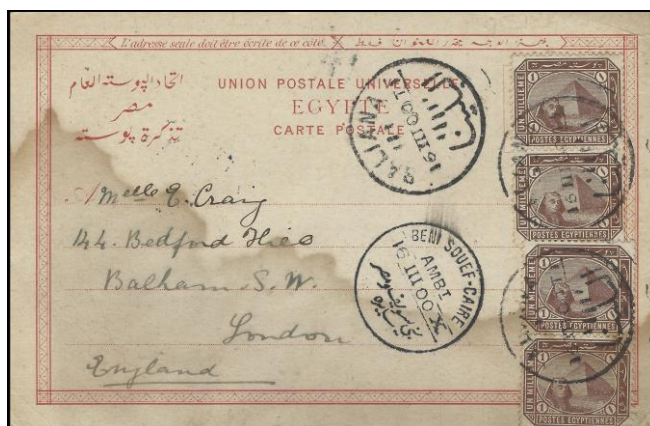 L'adresse seule doit être écrite de ce côté.
اتحاد البوسته العام
مصر
تذكرة بوسته
UNION POSTALE UNIVERSELLE
EGYPTE
CARTE POSTALE
BALIANA
16 III 00
Melle E. Craig
144. Bedford Hill
Balham. S. W.
London
England
BENI SOUEF-CAIRE
AMBT
16 III 00
UN MILLIEME
POSTES EGYPTIENNES
UN MILLIEME
POSTES EGYPTIENNES
UN MILLIEME
POSTES EGYPTIENNES
UN MILLIEME
POSTES EGYPTIENNES